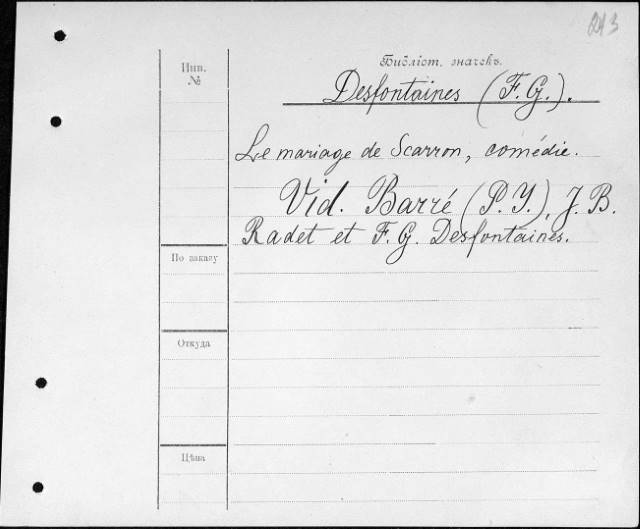 213
Библіот. значекъ.
Инв.
№
Desfontaines (F. G.).
Le mariage de Scarron, comédie.
Vid. Barré (P. Y.), J. B.
Radet et F. G. Desfontaines.
По заказу
Откуда
Цѣна